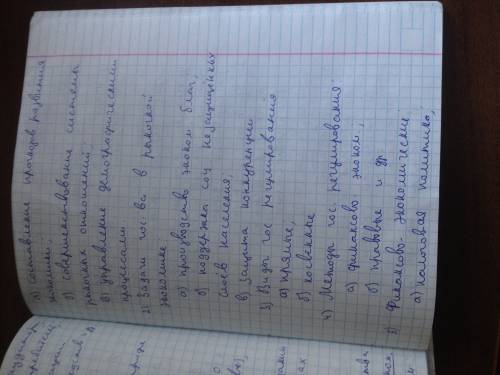 а) составление прогнозов развития
экономики;
б) совершенствование системы
рыночных отношений;
в) управление демографическими
процессами
2) Задачи гос-ва в рыночной
экономике
а) производство эконом благ,
б) поддержка соц незащищенных
слоев населения,
в) защита конкуренции
3) Виды гос регулирования
а) прямые,
б) косвенные
4) Методы гос регулирования:
а) финансово эконом.,
б) правовые и др
5) Финансово-экономические
а) налоговая политика,